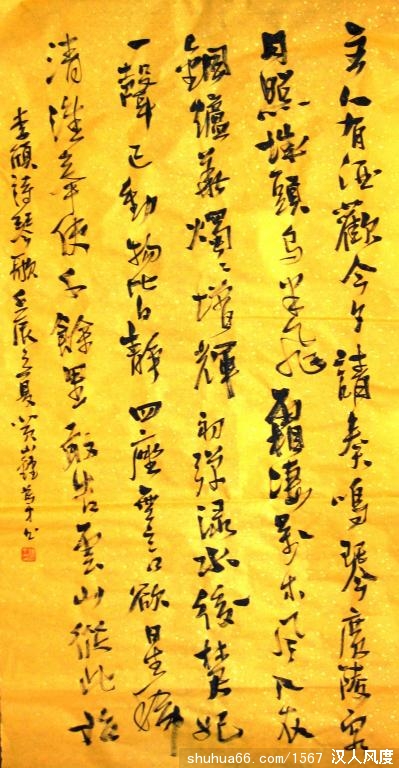 主人有酒歡今夕請奏鳴琴廣陵客
月照城頭烏半飛霜淒萬木風入衣
銅爐華燭〻增輝初弹渌水後楚妃
一聲已動物皆靜四座無言欲星稀
清淮奉使千餘里敢告雲山從此始
李頎詩琴歌壬辰之夏
shuhua66.com/1567 汉人风度